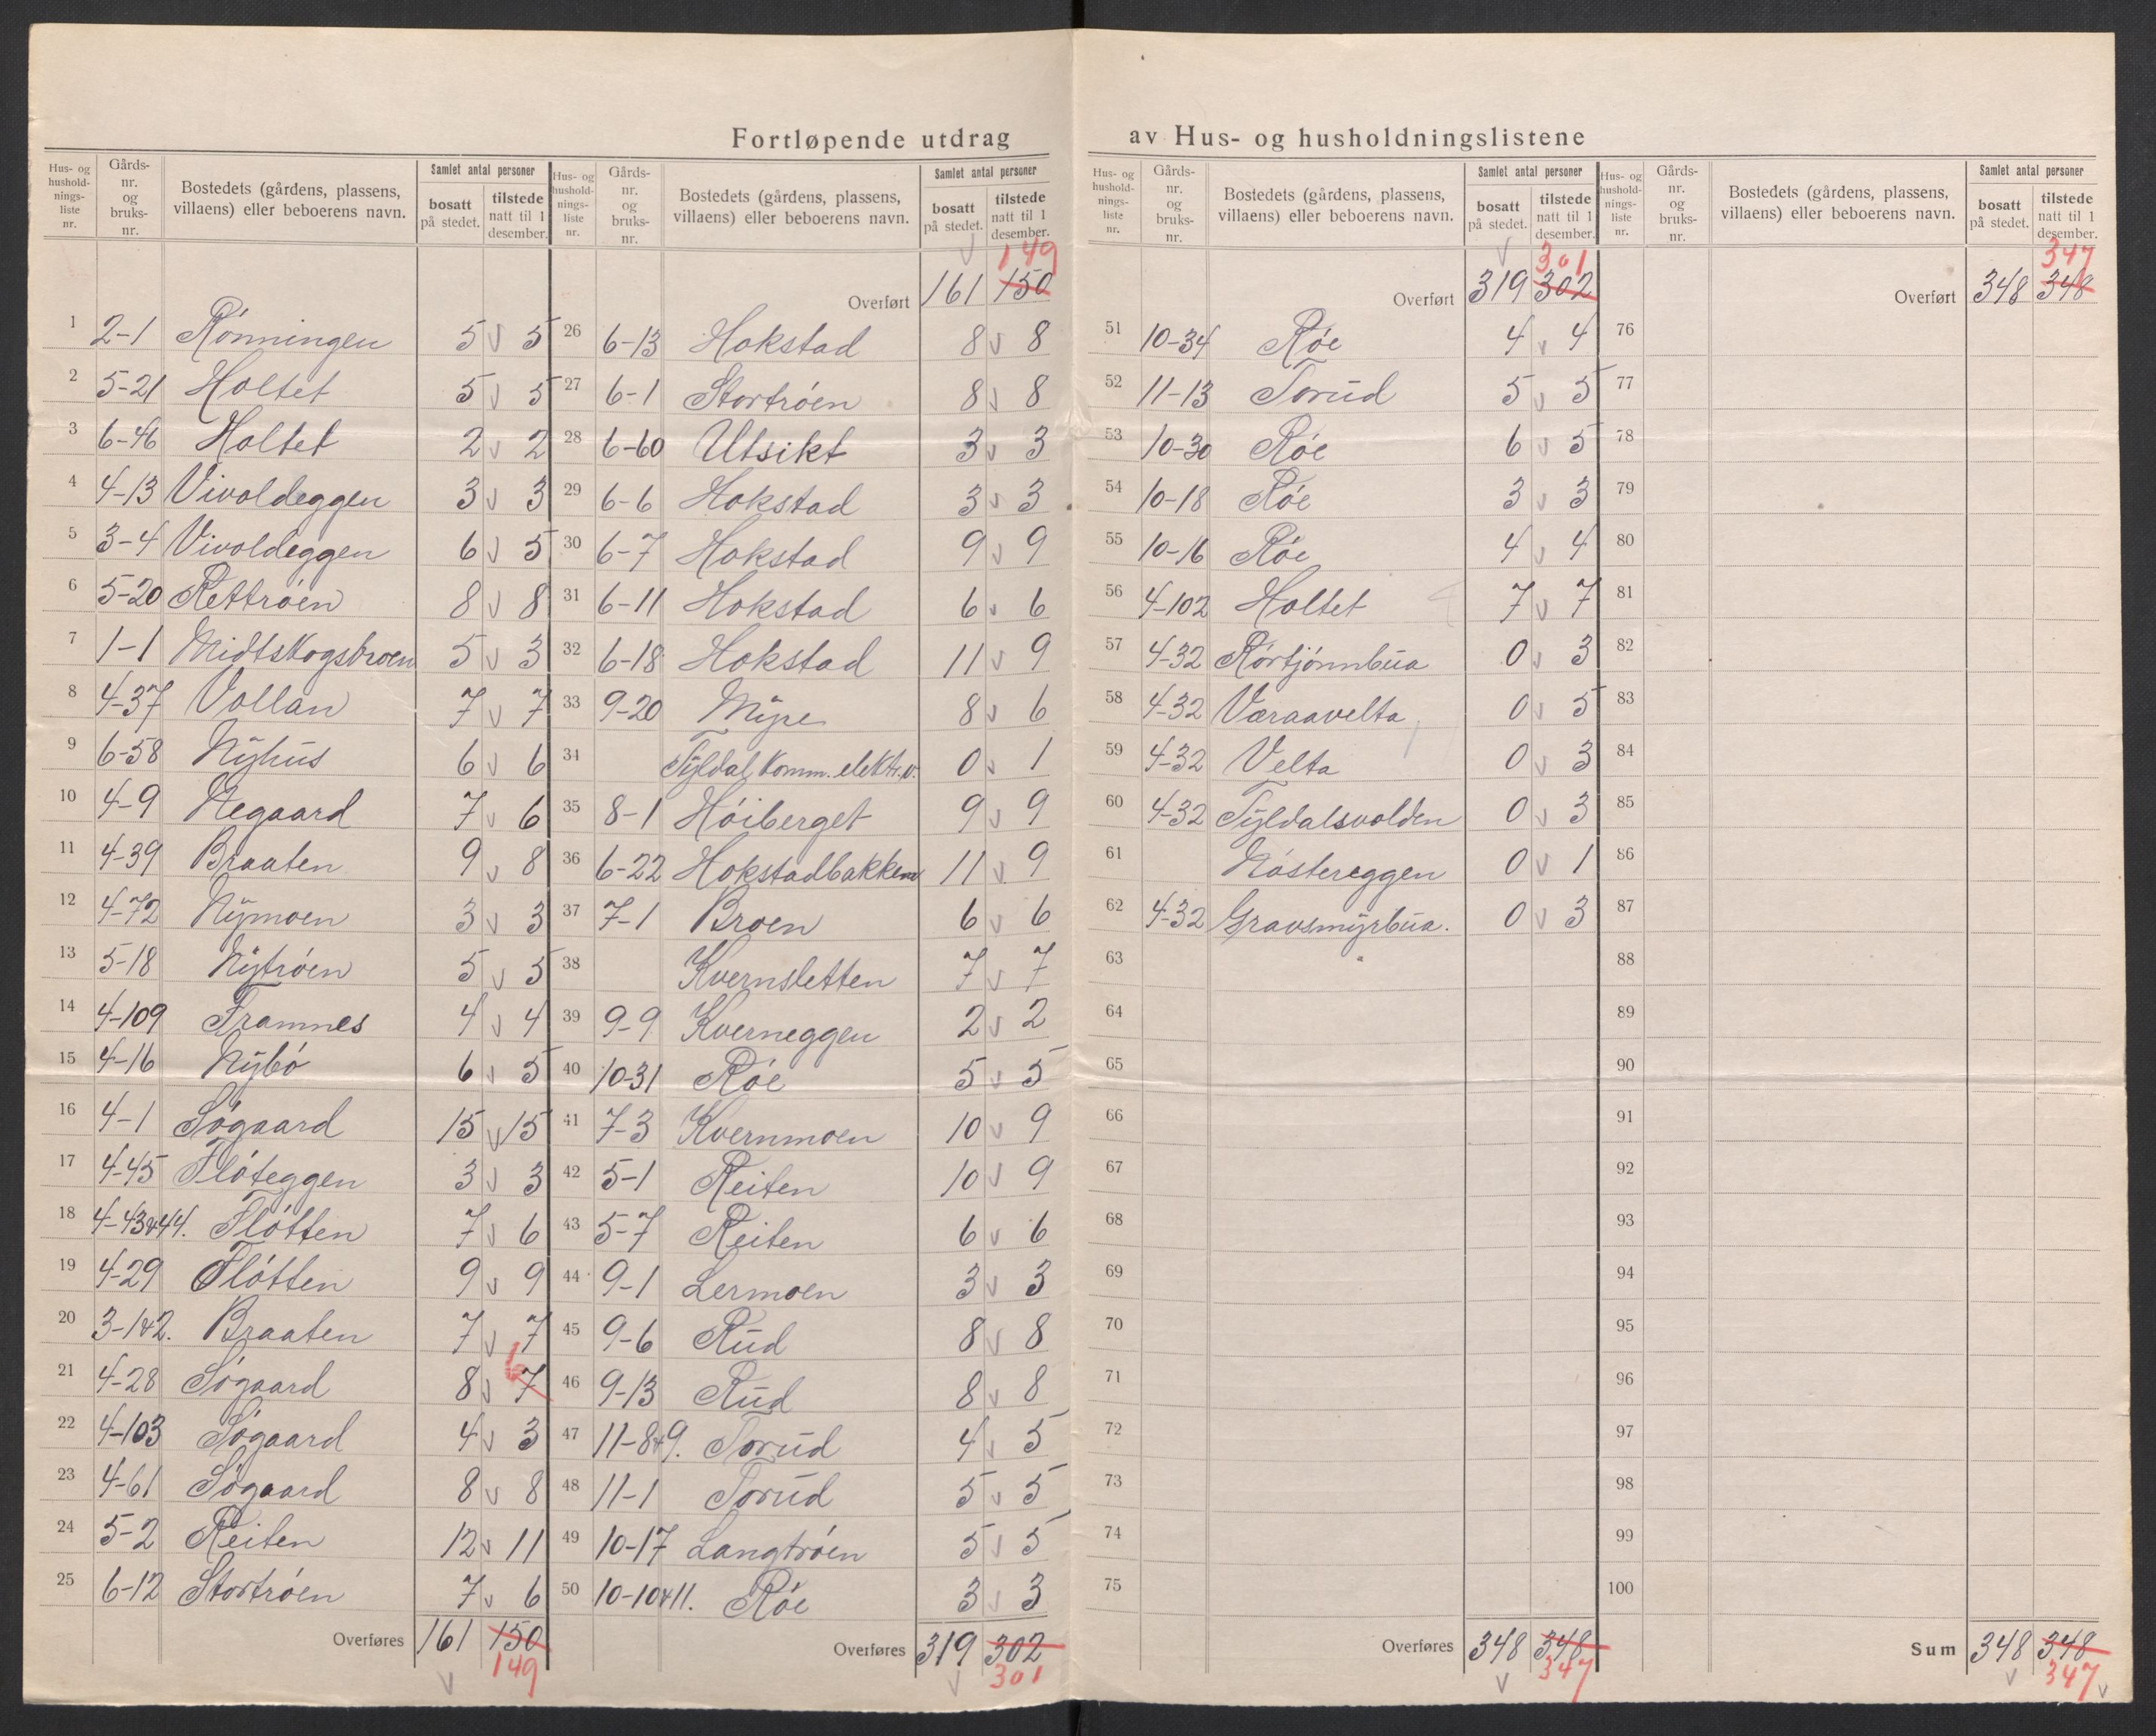 Fortløpende utdrag av Hus- og husholdningslistene
Hus- og hushold-nings-liste nr. | Gårds-nr. og bruks-nr. | Bostedets (gårdens, plassens, villaens) eller beboerens navn. | Samlet antal personer | bosatt på stedet. | tilstede natt til 1 desember.
1 2-1 Rønningen 5 v 5
2 5-21 Holtet 5 v 5
3 6-46 Holtet 2 v 2
4 4-13 Vivoldeggen 3 v 3
5 3-4 Vivoldeggen 6 v 5
6 5-20 Rettrøen 8 v 8
7 1-1 Midtskogsbroen 5 v 3
8 4-37 Vollan 7 v 7
9 6-58 Nyhus 6 v 6
10 4-9 Negaard 7 v 6
11 4-39 Braaten 9 v 8
12 4-72 Nymoen 3 v 3
13 5-18 Nytrøen 5 v 5
14 4-109 Framnes 4 v 4
15 4-16 Nybø 6 v 5
16 4-1 Søgaard 15 v 15
17 4-45 Fløteggen 3 v 3
18 4-43&44. Fløtten 7 v 6
19 4-29 Fløtten 9 v 9
20 3-1&2. Braaten 7 v 7
21 4-28 Søgaard 8 v 7 6
22 4-103 Søgaard 4 v 3
23 4-61 Søgaard 8 v 8
24 5-2 Reiten 12 v 11
25 6-12 Stortrøen 7 v 6
Overføres 161 150
v 149
Hus- og hushold-nings-liste nr. | Gårds-nr. og bruks-nr. | Bostedets (gårdens, plassens, villaens) eller beboerens navn. | Samlet antal personer | bosatt på stedet. | tilstede natt til 1 desember.
v 149
Overført 161 150
26 6-13 Hokstad 8 v 8
27 6-1 Stortrøen 8 v 8
28 6-60 Utsikt 3 v 3
29 6-6 Hokstad 3 v 3
30 6-7 Hokstad 9 v 9
31 6-11 Hokstad 6 v 6
32 6-18 Hokstad 11 v 9
33 9-20 Myre 8 v 6
34 Tyldal Komm. elektr.v. 0 v 1
35 8-1 Høiberget 9 v 9
36 6-22 Hokstadbakken 11 v 9
37 7-1 Broen 6 v 6
38 Kvernsletten 7 v 7
39 9-9 Kverneggen 2 v 2
40 10-31 Røe 5 v 5
41 7-3 Kvernmoen 10 v 9
42 5-1 Reiten 10 v 9
43 5-7 Reiten 6 v 6
44 9-1 Lermoen 3 v 3
45 9-6 Rud 8 v 8
46 9-13 Rud 8 v 8
47 11-8&9. Torud 4 v 5
48 11-1 Torud 5 v 5
49 10-17 Langtrøen 5 v 5
50 10-10&11. Røe 3 v 3
Overføres 319 302
v 301
Hus- og hushold-nings-liste nr. | Gårds-nr. og bruks-nr. | Bostedets (gårdens, plassens, villaens) eller beboerens navn. | Samlet antal personer | bosatt på stedet. | tilstede natt til 1 desember.
v 301
Overført 319 302
51 10-34 Røe 4 v 4
52 11-13 Torud 5 v 5
53 10-30 Røe 6 v 5
54 10-18 Røe 3 v 3
55 10-16 Røe 4 v 4
56 4-102 Holtet 7 v 7
57 4-32 Rørtjønnbua 0 v 3
58 4-32 Væraavelta 0 v 5
59 4-32 Velta 0 v 3
60 4-32 Tyldalsvolden 0 v 3
61 Nøstereggen 0 v 1
62 4-32 Gravsmyrbua. 0 v 3
63
64
65
66
67
68
69
70
71
72
73
74
75
Overføres 348 348
v 347
Hus- og hushold-nings-liste nr. | Gårds-nr. og bruks-nr. | Bostedets (gårdens, plassens, villaens) eller beboerens navn. | Samlet antal personer | bosatt på stedet. | tilstede natt til 1 desember.
347
Overført 348 348
76
77
78
79
80
81
82
83
84
85
86
87
88
89
90
91
92
93
94
95
96
97
98
99
100
Sum 348 348
v 347 v